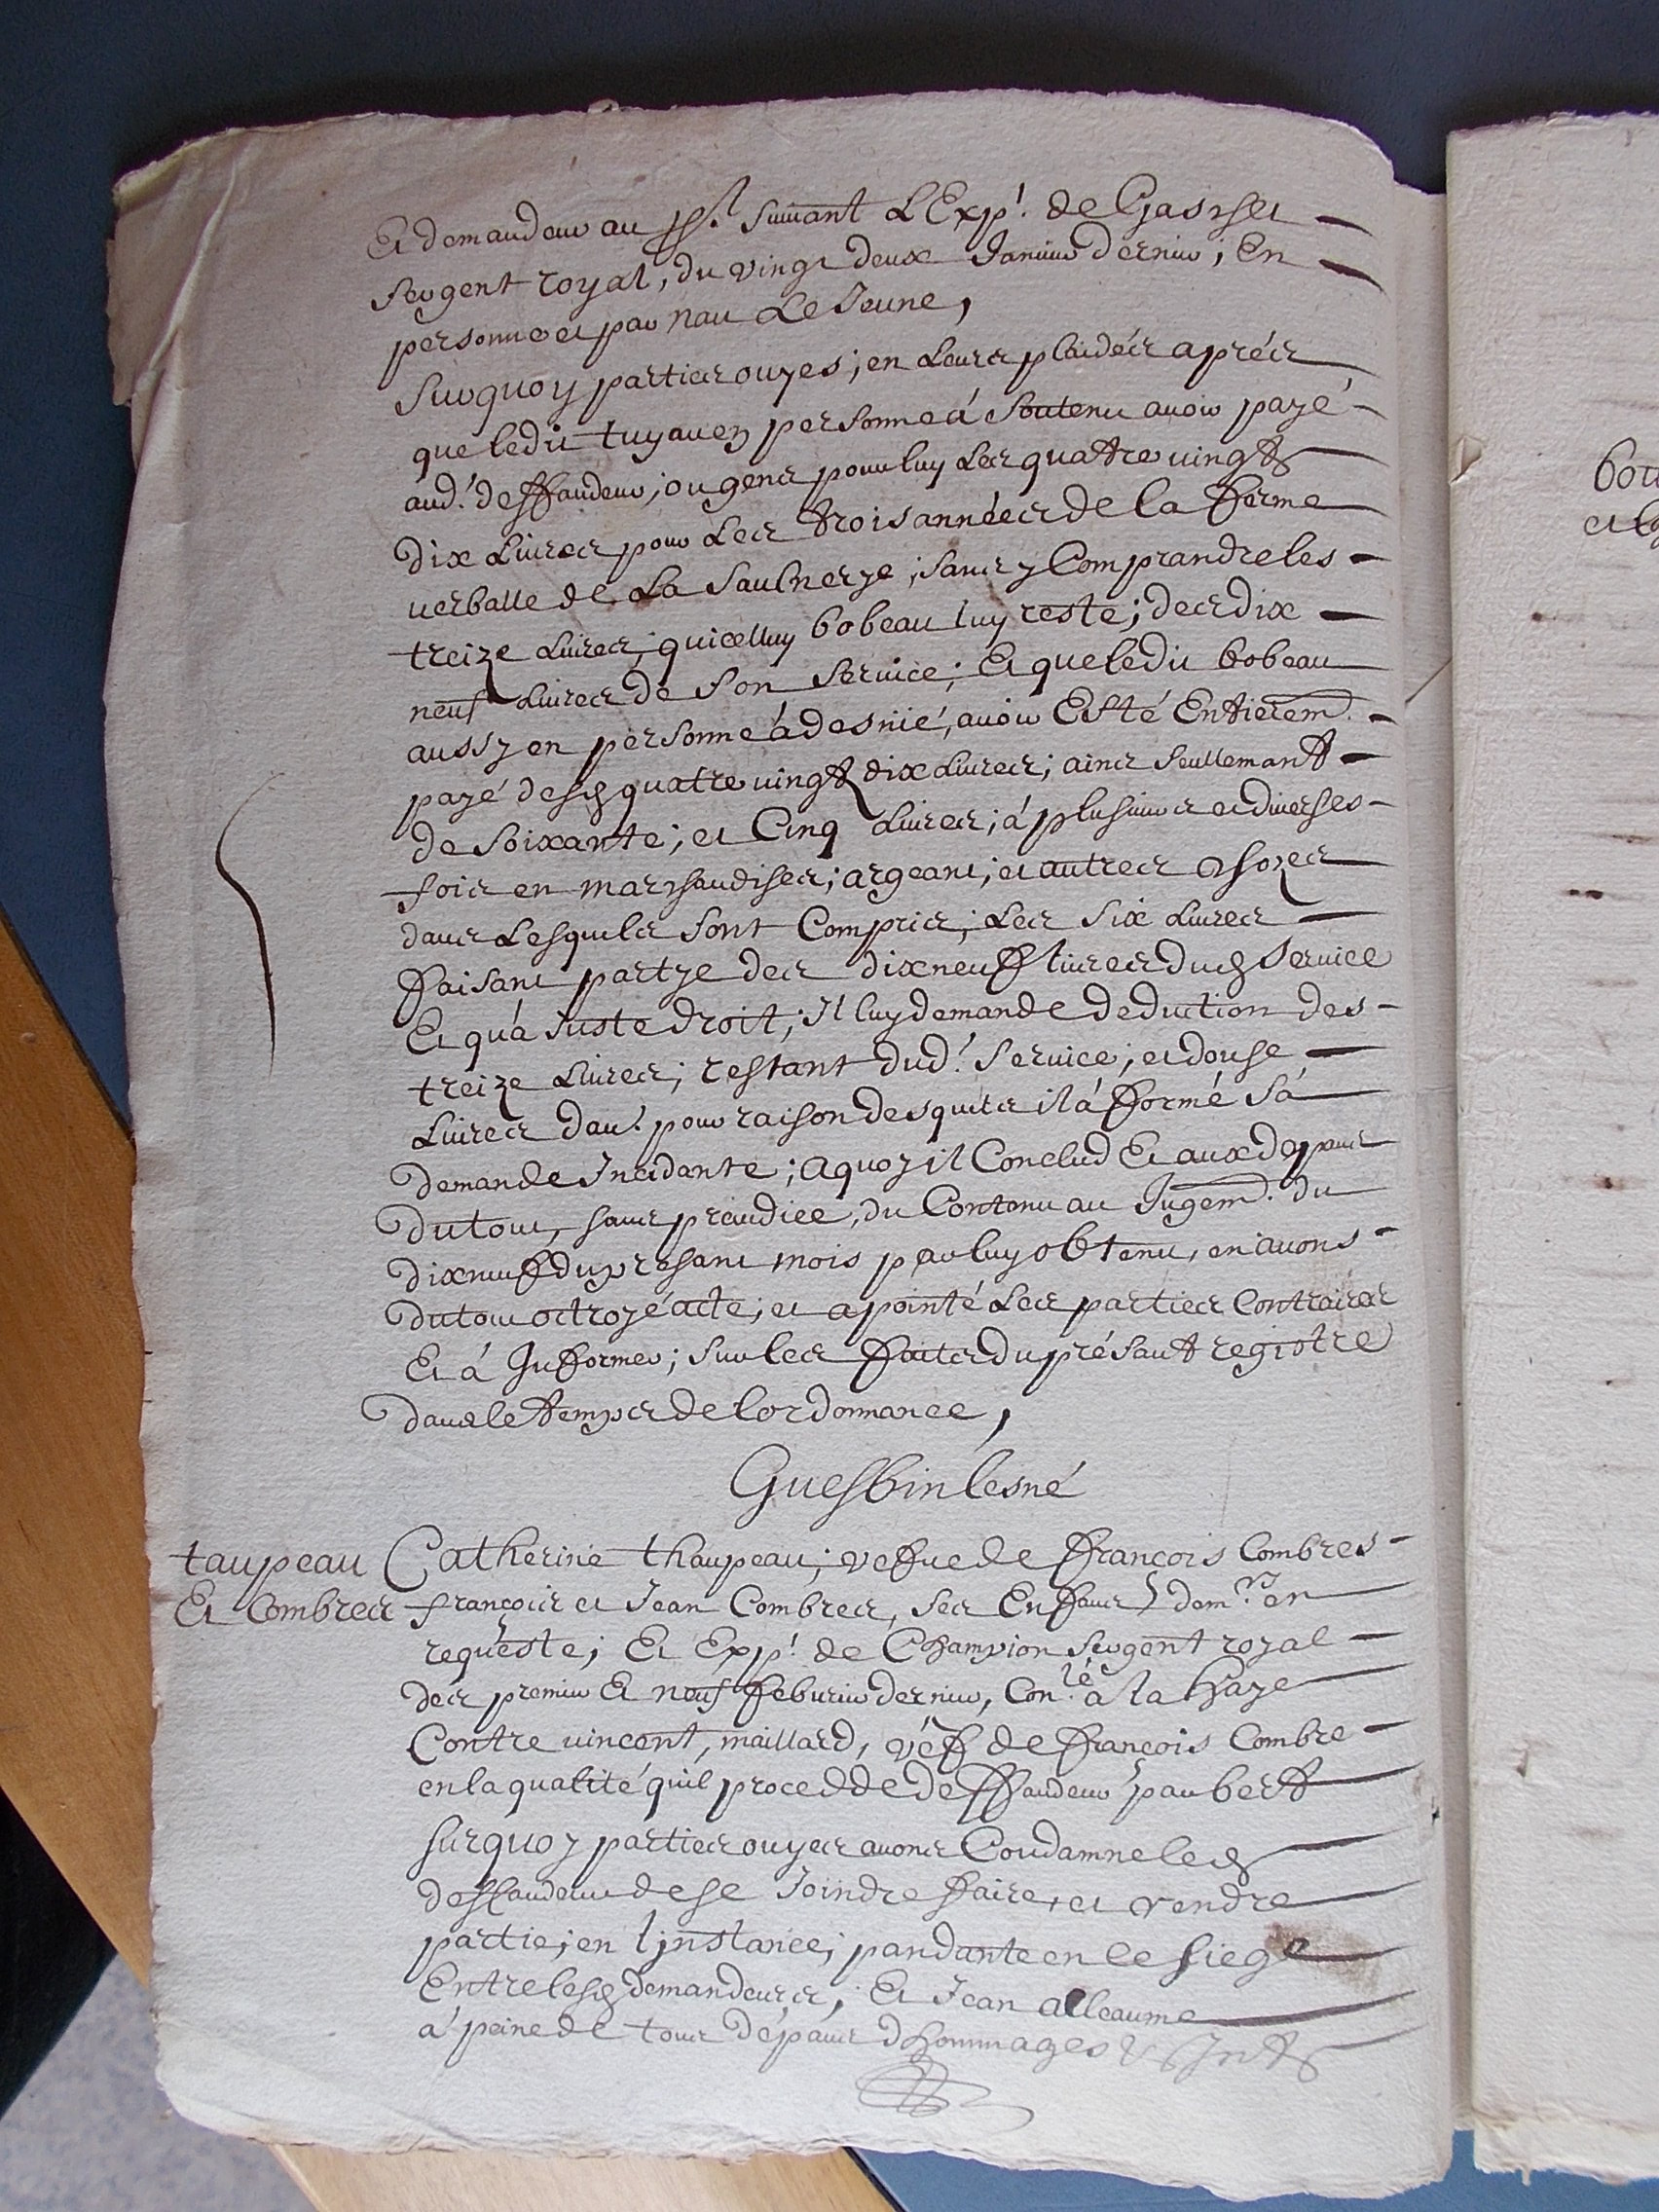 Et demandeur au pst. suiuant L'Exp.t de Gascher
sergent royal, du vingt deux Januier dernier; En
personne et par nau Le Jeune,
Surquoy parties ouyes; en Leurs plaidés aprés
que ledit tuyau en personne á Soutenu auoir payé
aud.t deffandeur; ou gens pour luy Les quatre uingts
dix Liures pour Les trois années de la fferme
uerballe de La Saulnerye; sans y Comprandre les
treize Liures; quicelluy bobeau luy reste; des dix
neuf Liures de Son Seruice; Et que ledit bobeau
aussy en personne á desnié, auoir Esté Entierem.t
payé desd quatre uingt dix Liures; ains seullemant
de Soixante; et Cinq Liures; á plusieurs et diuerses
fois en marchandises; argeant; et autres chozes
dans Lesquels sont Compris; Les six Liures
ffaisant partye des dix neuff liures dud Seruice
Et qu'a Juste droit; Il luy demande deduction des
treize Liures; restant dud.t Seruice; et douse
Liures dau.t pour raison desquels il á fformé Sá
demande Incidante; a quoy il Conclud Et aux depans
du tout, sans preiudice, du Contenu au Jugem.t du
dix neuff du presant mois par luy obtenu, en auons
du tout octroyé acte; et apointé Les parties Contraires
Et á Jnfformer; sur les ffaits du présant registre
dans le temps de lordonnance,
Guesbin lesné
taupeau
Et Combres
Catherine thaupeau; veffue de ffrancois Combres
francois et Jean Combres, ses Enffans, dem.rs en
requeste; Et Exp.t de Champion sergent royal
des premier Et neuf ffeburier dernier, Con.lé á la haye
Contre uincent, maillard, véff de ffrancois Combre
en la qualité quil procedde deffandeur, par bert
surquoy parties ouyes auons Condamne led
deffandeur de se Joindre ffaire, et rendre
partie; en l'jnstance; pandante en ce siege
Entre lesd demandeurs; Et Jean alleaume
a' peine de tous dépans dhommages & Jnts